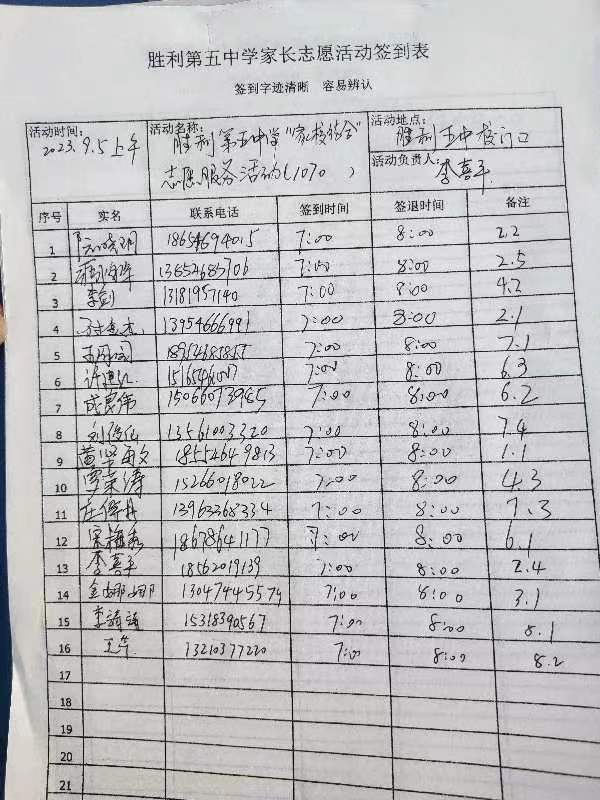 胜利第五中学家长志愿活动签到表
签到字迹清晰 容易辨认
活动时间: 活动名称: 活动地点:
2023.9.5上午 胜利第五中学"家校结合" 胜利五中校门口
志愿服务活动(1070) 活动负责人: 李喜平
序号 实名 联系电话 签到时间 签退时间 备注
1 18654694015 7:00 8:00 2.2
2 13852685706 7:00 8:00 2.5
3 李剑 13181957140 7:00 8:00 4.2
4 13954666991 7:00 8:00 2.1
5 7:00 8:00 7.1
6 7:00 8:00 6.3
7 15066073985 7:00 8:00 6.2
8 13561003320 7:00 8:00 7.4
9 18554649813 7:00 8:00 1.1
10 15266018022 7:00 8:00 4.3
11 13963368334 7:00 8:00 7.3
12 18678641177 7:00 8:00 6.1
13 李喜平 18562019139 7:00 8:00 2.4
14 金娜娜 13047445574 7:00 8:00 3.1
15 15318390567 7:00 8:00 8.1
16 13210377220 7:00 8:00 8.2
17
18
19
20
21